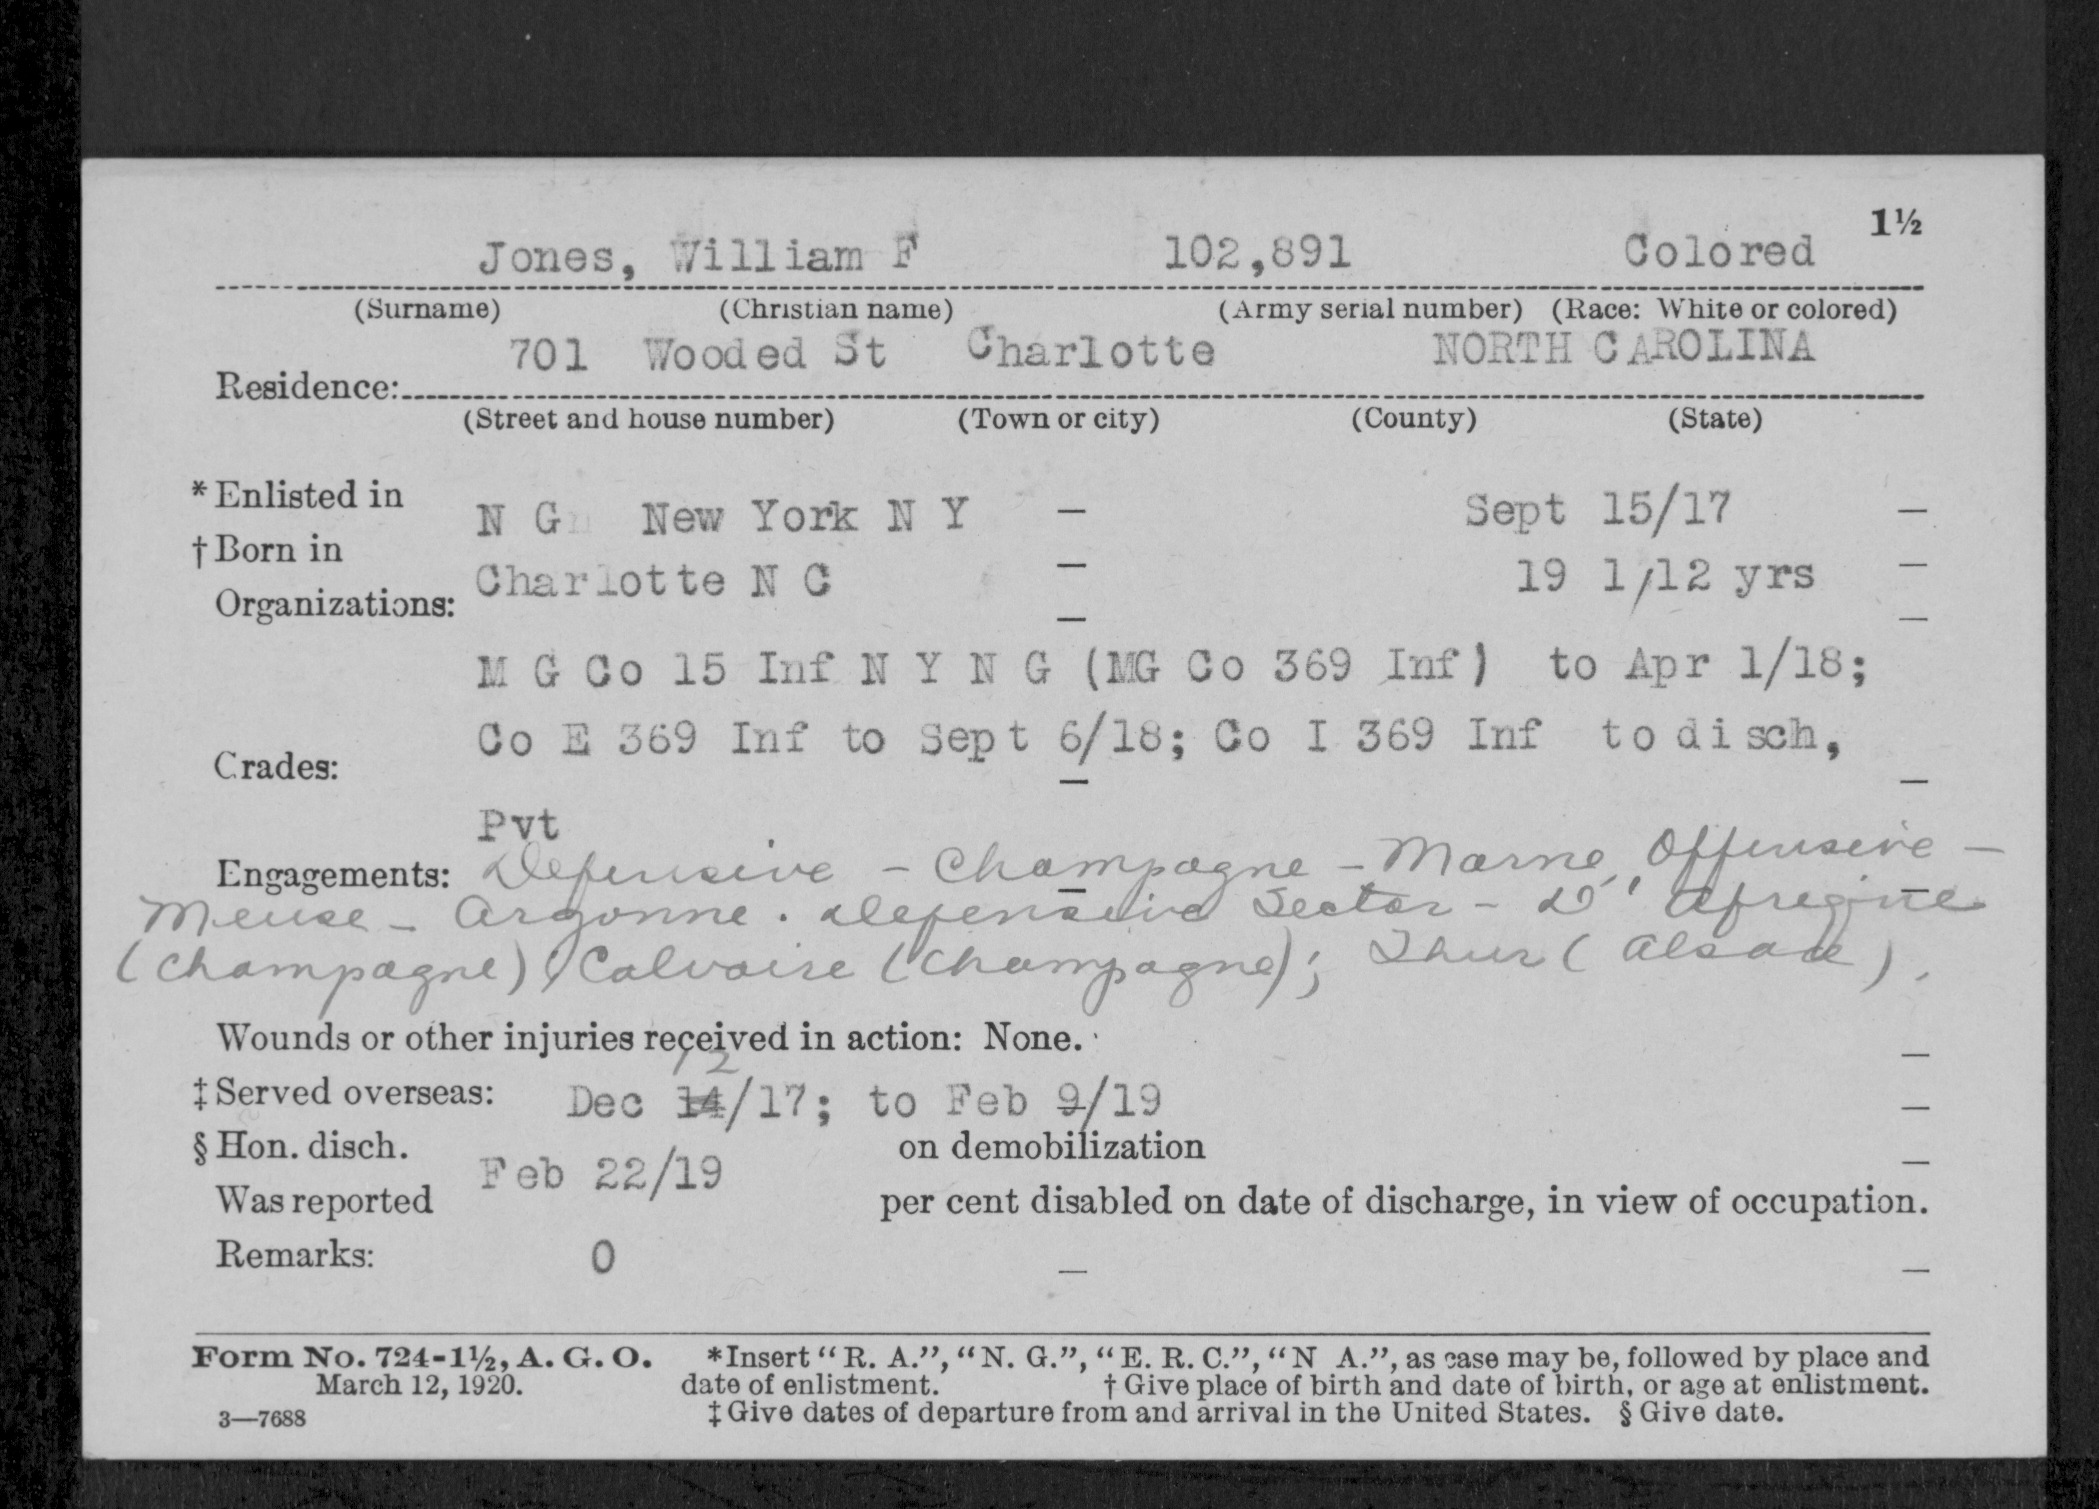 1½
Jones, William F 102,891 Colored
(Surname) (Christian name) (Army serial number) (Race: White or colored)
701 Wooded St Charlotte NORTH CAROLINA
Residence:
(Street and house number) (Town or city) (County) (State)
*Enlisted in N G New York N Y — Sept 15/17 —
†Born in Charlotte N C — 19 1/12 yrs —
Organizations: — —
M G Co 15 Inf N Y N G (MG Co 369 Inf) to Apr 1/18;
Co E 369 Inf to Sept 6/18; Co I 369 Inf to disch,
Grades: — —
Pvt
Engagements: Defensive - Champagne - Marne, Offensive -
Meuse - Argonne. Defensive Sector - D' Afregine
(Champagne); Calvaire (Champagne); Thur (Alsace).
Wounds or other injuries received in action: None. —
12
‡Served overseas: Dec 14/17; to Feb 9/19 —
§Hon. disch. Feb 22/19 on demobilization —
Was reported 0 per cent disabled on date of discharge, in view of occupation.
Remarks: — —
Form No. 724-1½, A. G. O. *Insert "R. A.", "N. G.", "E. R. C.", "N A.", as case may be, followed by place and
March 12, 1920. date of enlistment. †Give place of birth and date of birth, or age at enlistment.
3—7688 ‡Give dates of departure from and arrival in the United States. §Give date.